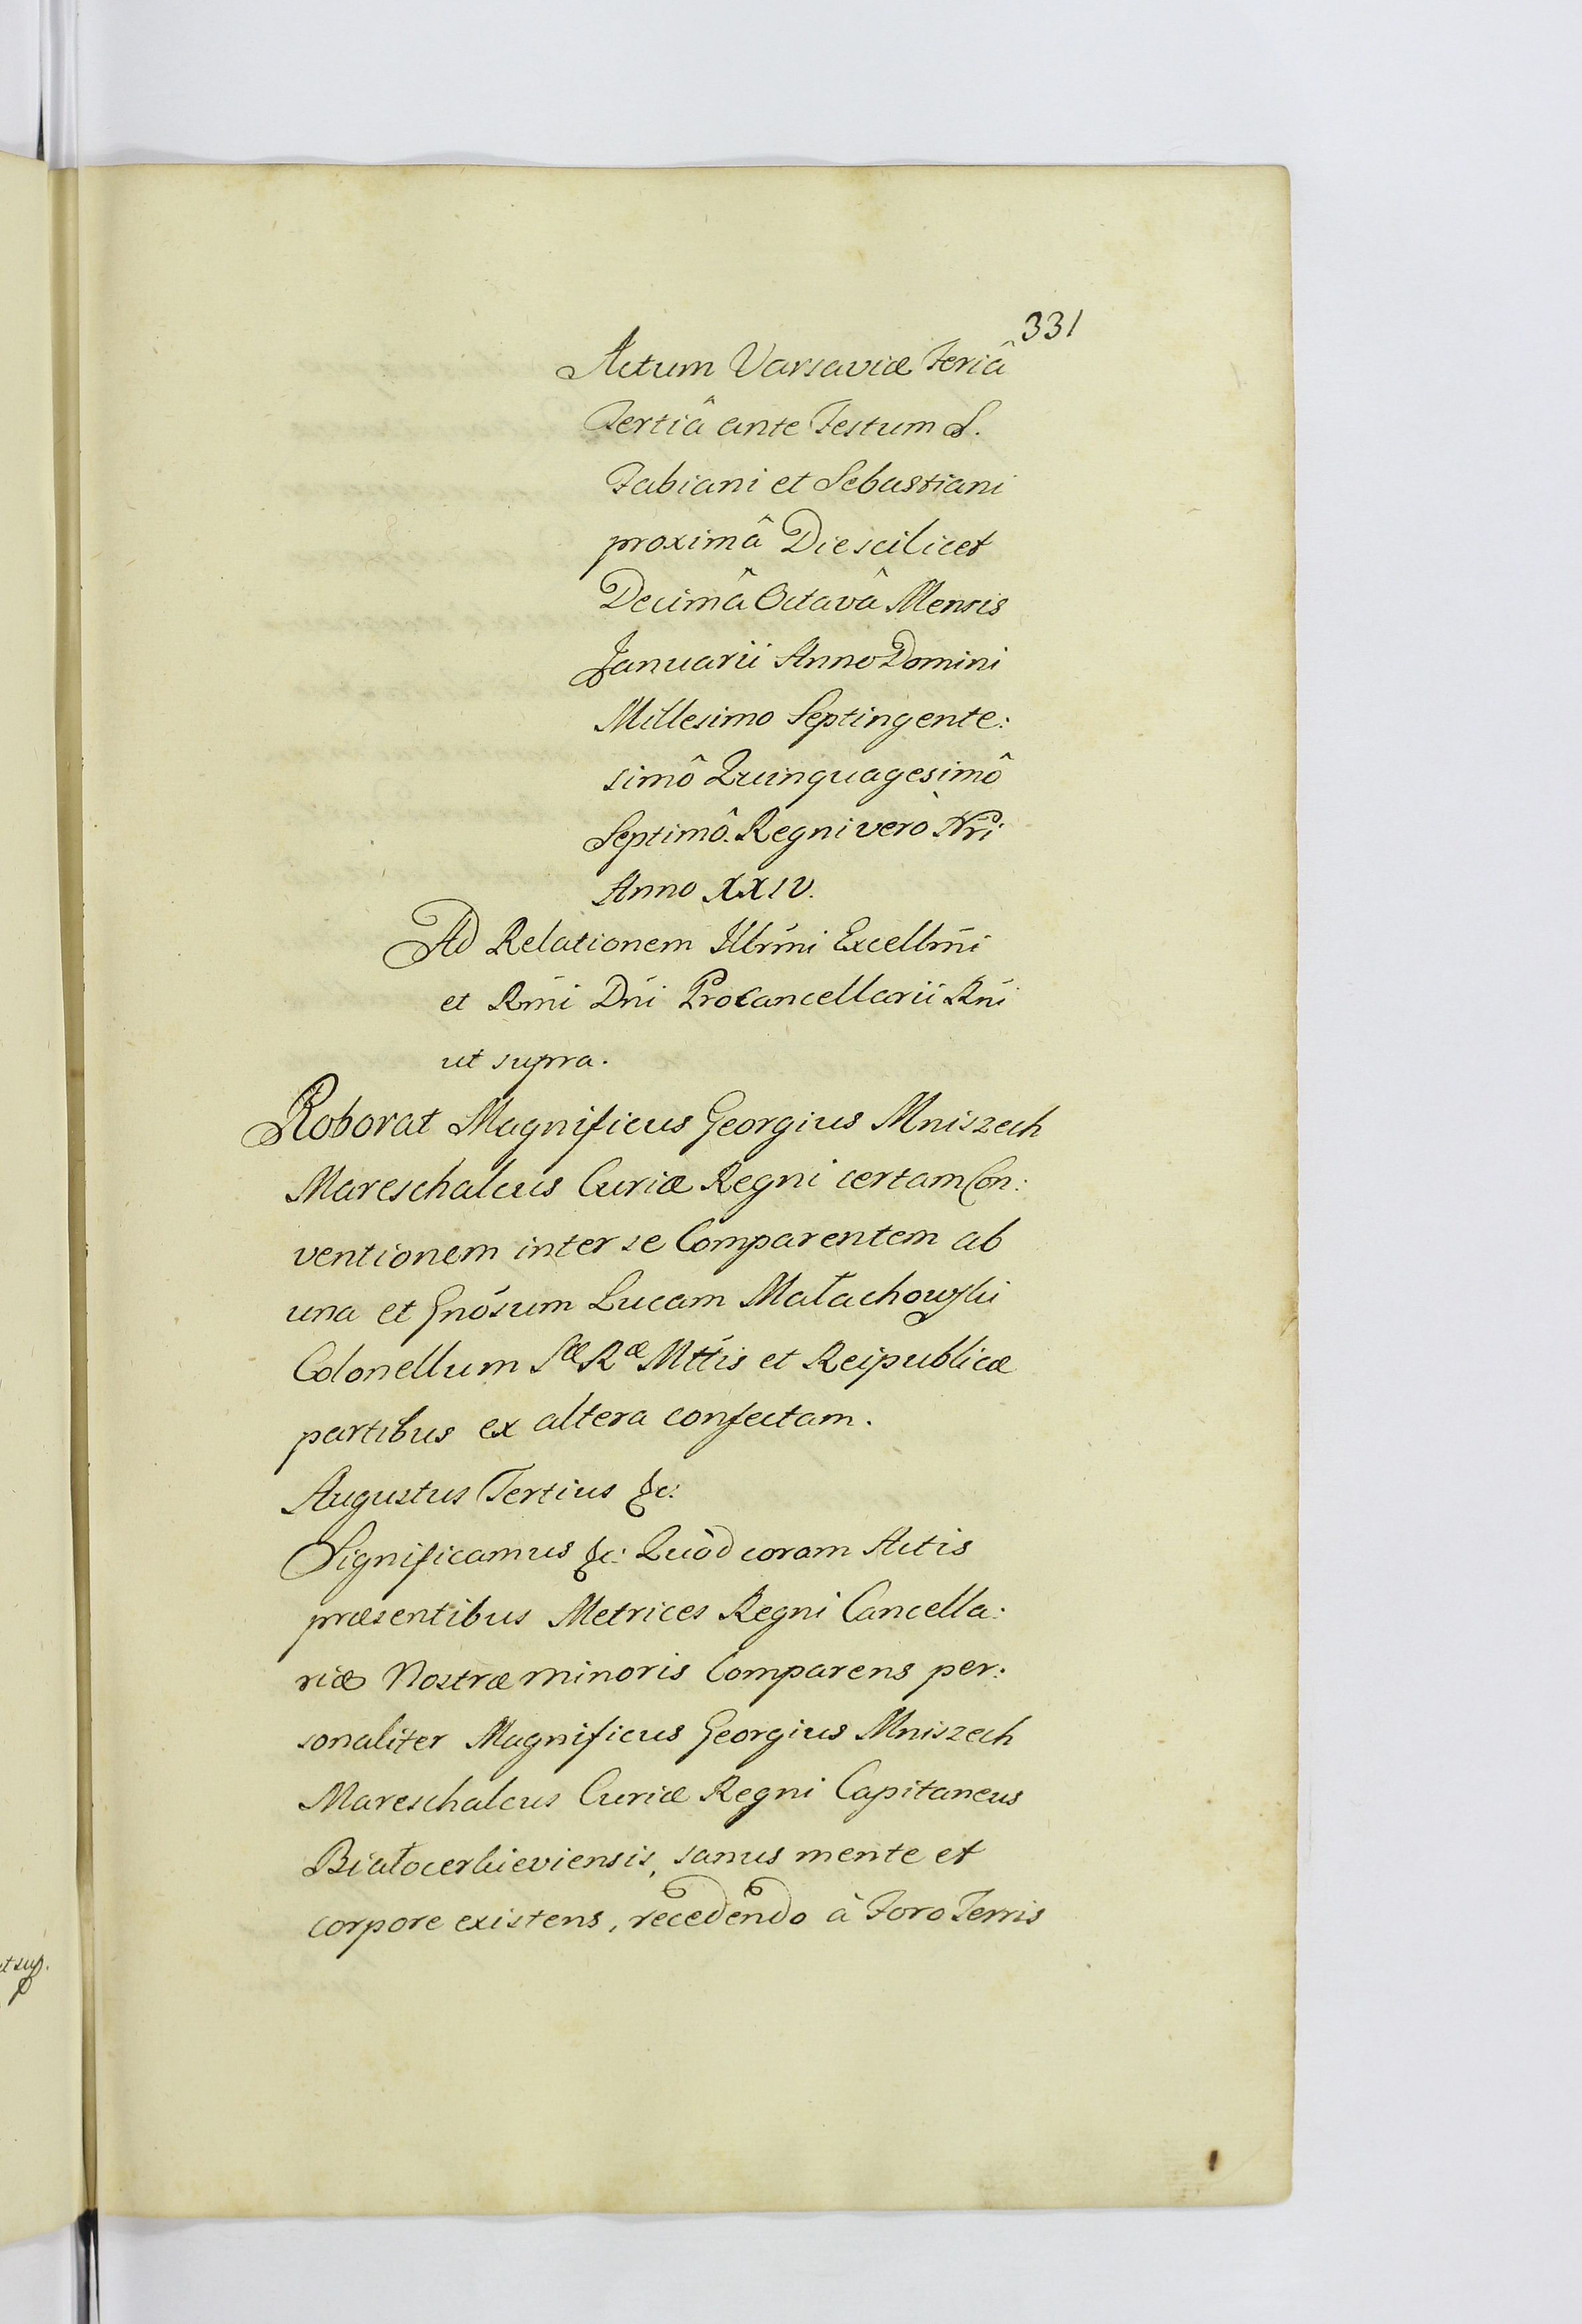 331
Actum Varsaviæ Feriâ
Tertiâ ante Festum S.
Fabiani et Sebastiani
proximâ Die scilicet
Decimâ Octavâ Mensis
Januarii Anno Domini
Millesimo Septingente:
simô Quinquagesimô
Septimô. Regni verò Nri
Anno XXIV.
Ad Relationem Illrmi Excellmi
et Rmi Dni Procancellarii Rni
ut supra.
Roborat Magnificus Georgius Mniszech
Mareschalcus Curiæ Regni certam Con:
ventionem inter se Comparentem ab
una et Gnosum Lucam Małachowski
Colonellum Sæ Ræ Mttis et Reipublicæ
partibus ex altera confectam.
Augustus Tertius &c:
Significamus &c: Quòd coram Actis
præsentibus Metrices Regni Cancella:
riæ Nostræ minoris Comparens per:
sonaliter Magnificus Georgius Mniszech
Mareschalcus Curiæ Regni Capitaneus
Białocerkieviensis, sanus mente et
corpore existens, recedendo à Foro Terris
ut sup.